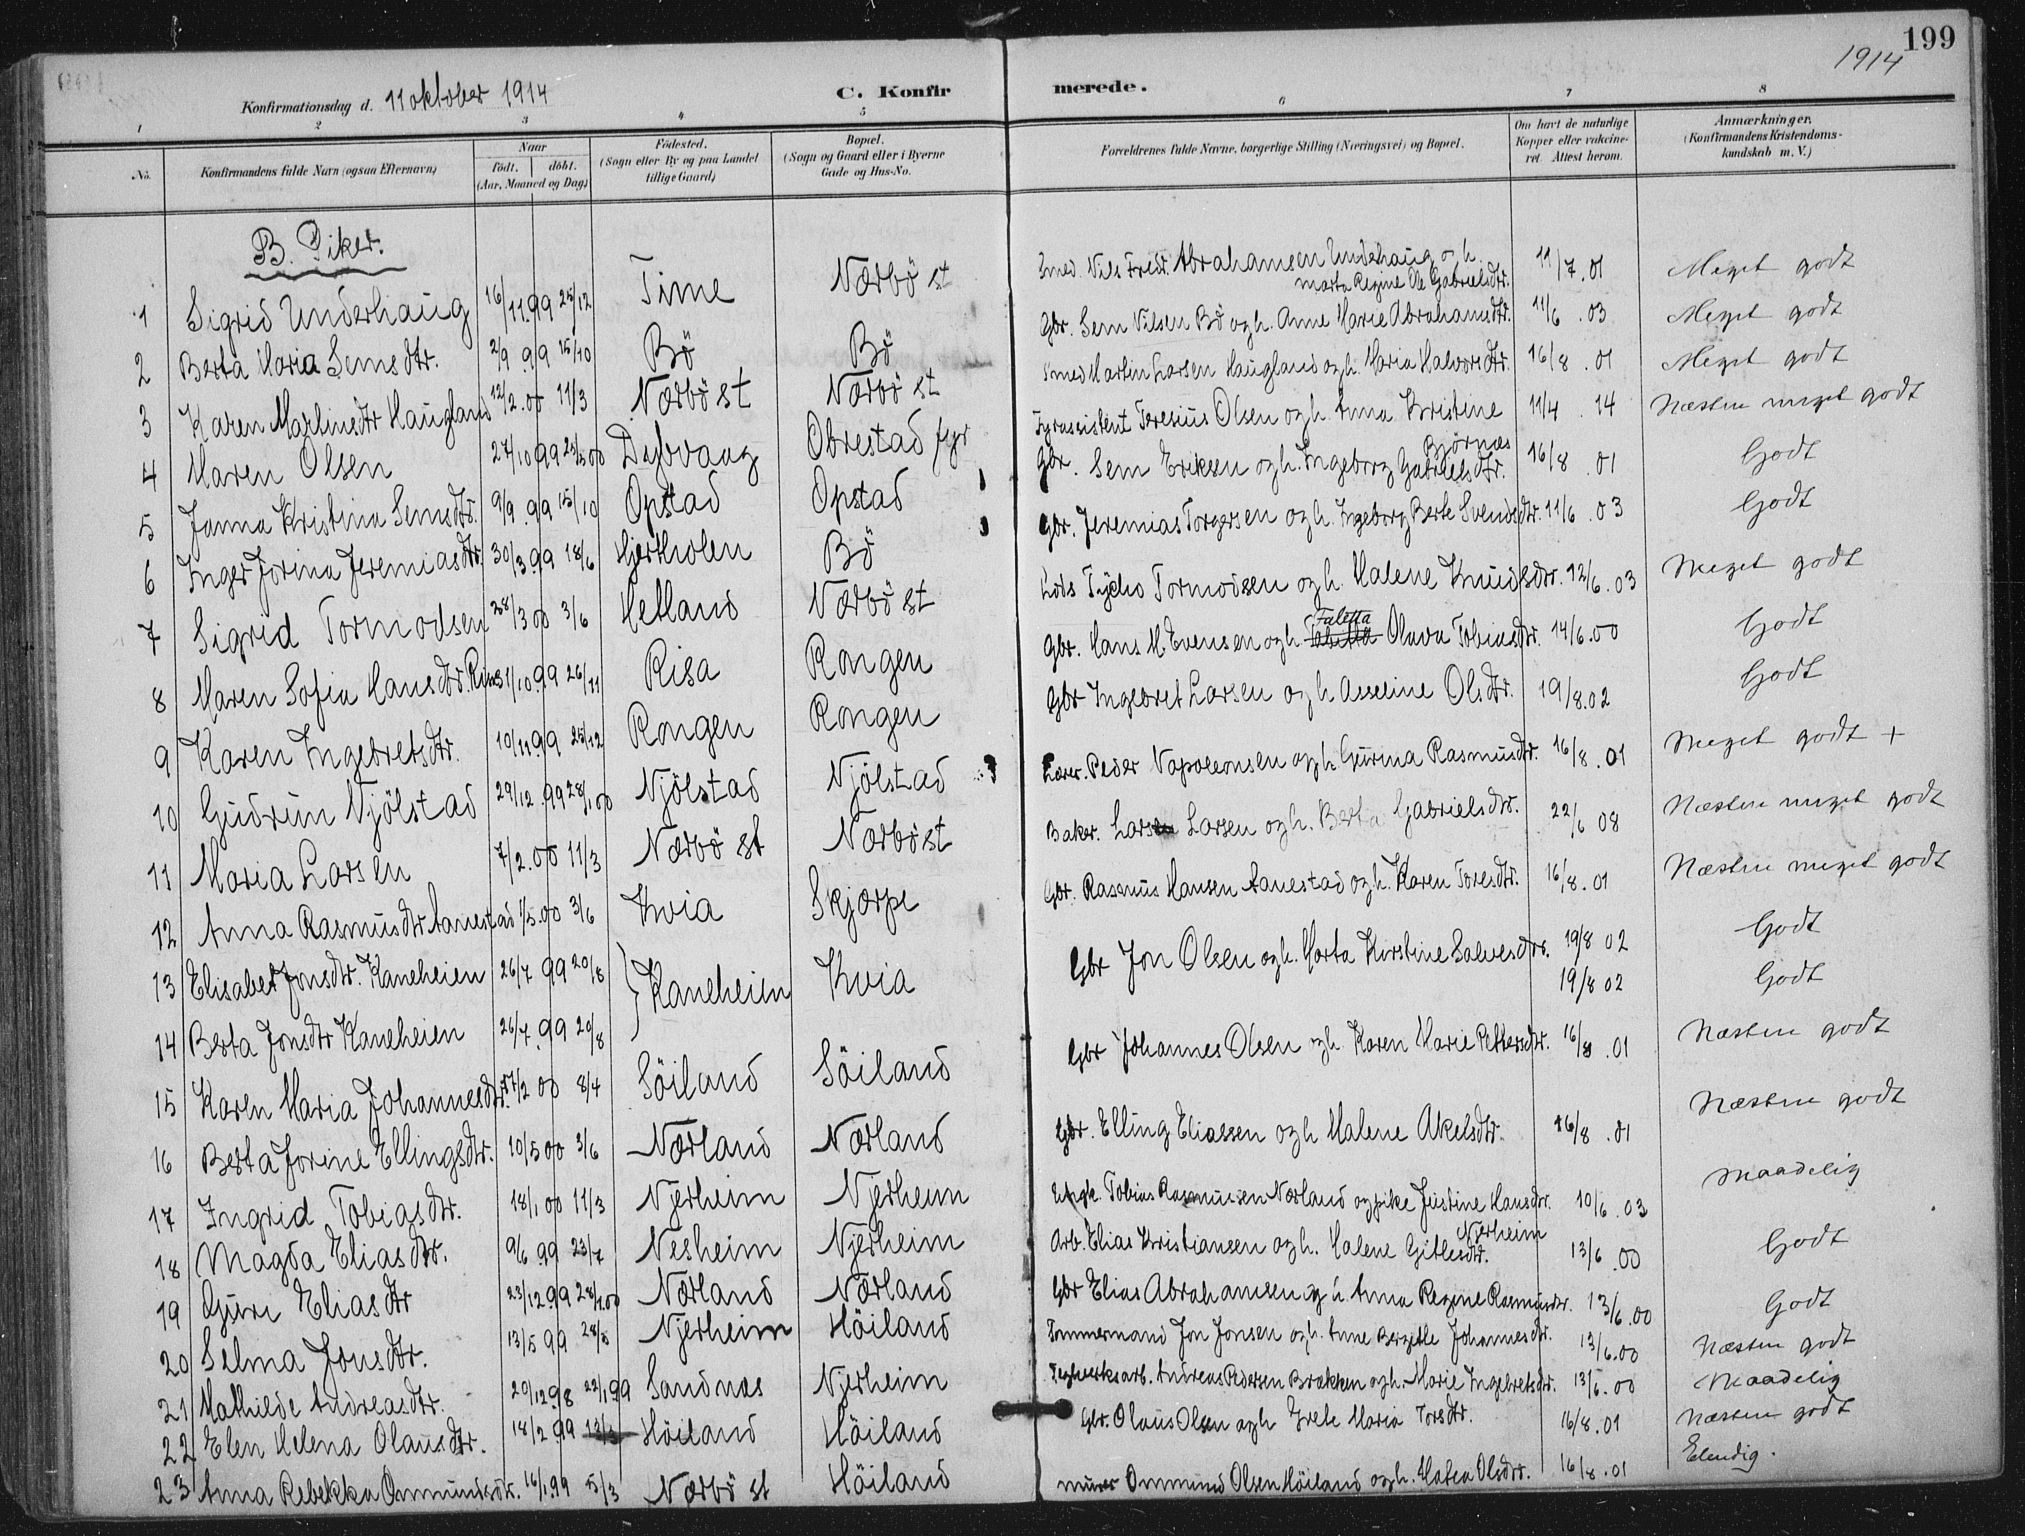 199
1914
Konfirmationsdag d. 11 oktober 1914
C. Konfirmerede.
1 2 3 4 5 6 7 8
No. Konfirmandens fulde Navn (ogsaa Efternavn) Naar Födt. döbt. (Aar, Maaned og Dag) Födested. (Sogn eller By og paa Landet tillige Gaard) Bopæl. (Sogn og Gaard eller i Byerne Gade og Hus-No. Forældrenes fulde Navne, borgerlige Stilling (Næringsvei) og Bopæl. Om havt de naturlige Kopper eller vakcineret. Attest herom. Anmærkninger. (Konfirmandens Kristendomskundskab m. V.)
B. Piker.
1 Sigrid Underhaug 16/11.99 25/12 Time Nærbö st Smed. Nils Fredr. Abrahamsen Underhaug o h. Marta Regine Gabrielsdtr. 11/7.01 Meget godt
2 Berta Maria Semsdtr. 2/9.99 15/10 Bö Bö Gbr. Sem Nilsen Bö og h. Anne Marie Abrahamsdtr. 11/6.03 Meget godt
3 Karen Martinsdtr Haugland 12/2.00 11/3 Nærbö st Nærbö st Smed Martin Larsen Haugland og h. Maria Halvorsdtr. 16/8.01 Meget godt
4 Maren Olsen 27/10 99 25/3 00 Dybvaag Obrestad fyr Fyrassistent Teresius Olsen og h. Anna Kristine Bjørnæs 11/4.14 Næsten meget godt
5 Janna Kristina Semsdtr. 9/9.99 15/10 Opstad Opstad Gbr. Sem Eriksen og h. Ingeborg Gabrielsdtr. 16/8.01 Godt
6 Inger Jorina Jeremiasdtr. 30/3.99 18/6 Hjertholen Bö Gbr. Jeremias Torgersen og h. Ingeborg Berte Svendsdtr. 11/6.03 Godt
7 Sigrid Tormodsen 28/3 00 3/6 Hetland Nærbö st Lods Tycho Tormodsen og h. Malene Knudsdtr. 12/6.03 Meget godt
8 Maren Sofia Hansdtr. Risa 1/10.99 26/11 Risa Rongen Gbr. Hans M. Evensen og h. Taletta Olava Tobiasdtr. 14/6.00 Godt
9 Karen Ingebretsdtr. 10/11.99 25/12 Rongen Rongen Gbr Ingebret Larsen og h. Asseline Olsdtr. 19/8.02 Godt
10 Gudrun Njölstad 29/12.99 28/1 00 Njölstad Njölstad Lærer. Peder Napoleonsen og h. Gurina Rasmusdtr. 16/8.01 Meget godt +
11 Maria Larsen 7/2.00 11/3 Nærbö st Nærbö st Baker. Lars Larsen og h. Berta Gabrielsdtr. 22/6 08 Næsten meget godt
12 Anna Rasmusdtr Aanestad 1/5.00 3/6 Kvia Skjærpe Gbr. Rasmus Hansen Aanestad og h. Karen Toresdtr. 16/8.01 Næsten meget godt
13 Elisabet Jonsdtr. Kaneheien 26/7.99 20/8 Kaneheien Kvia Gbr Jon Olsen og h. Marta Kirstine Salvesdtr. 19/8 02 Godt
14 Berta Jonsdtr Kaneheien 26/7.99 20/8 19/8 02 Godt
15 Karen Maria Johannesdtr. 17/2 00 8/4 Söiland Söiland Gbr Johannes Olsen og h. Karen Marie Pettersdtr. 16/8.01 Næsten godt
16 Berta Jorine Ellingsdtr. 10/5 00 3/6 Nærland Nærland Gbr. Elling Eliassen og h Malene Akelsdtr. 16/8.01 Næsten godt
17 Ingrid Tobiasdtr. 18/1 00 11/3 Njerheim Njerheim Ungk. Tobias Rasmussen Nærland og pike Justine Hansdtr. Njerheim 10/6.03 Maadelig
18 Magda Eliasdtr. 9/6.99 23/7 Nesheim Njerheim Arb. Elias Kristiansen og h. Malene Gitlesdtr. 13/6.00 Godt
19 Guri Eliasdtr 23/12.99 28/1.00 Nærland Nærland Gbr Elias Abrahamsen og h. Anna Regine Rasmusdtr. 13/6.00 Godt
20 Selma Jonsdtr. 13/5 99 28/5 Njerheim Höiland Tømmermand Jon Jonsen og h. Anne Bergitte Johannesdtr. 13/6.00 Næsten godt
21 Mathilde Andreasdtr. 20/12.98 22/1.99 Sandnæs Njerheim Teglverksarb. Andreas Pedersen Brækken og h. Marie Ingebretsdtr. 13/6.00 Maadelig
22 Elen Helena Olausdtr. 18/2.99 13/3 Höiland Höiland Gbr. Olaus Olsen og h Grete Maria Torsdtr. 16/8.01 Næsten godt
23 Anna Rebekka Ommundsdtr. 16/1.99 5/3 Nærbö st Höiland Murer Ommund Olsen Höiland og h. Matea Olsdtr. 16/8.01 Elendig.